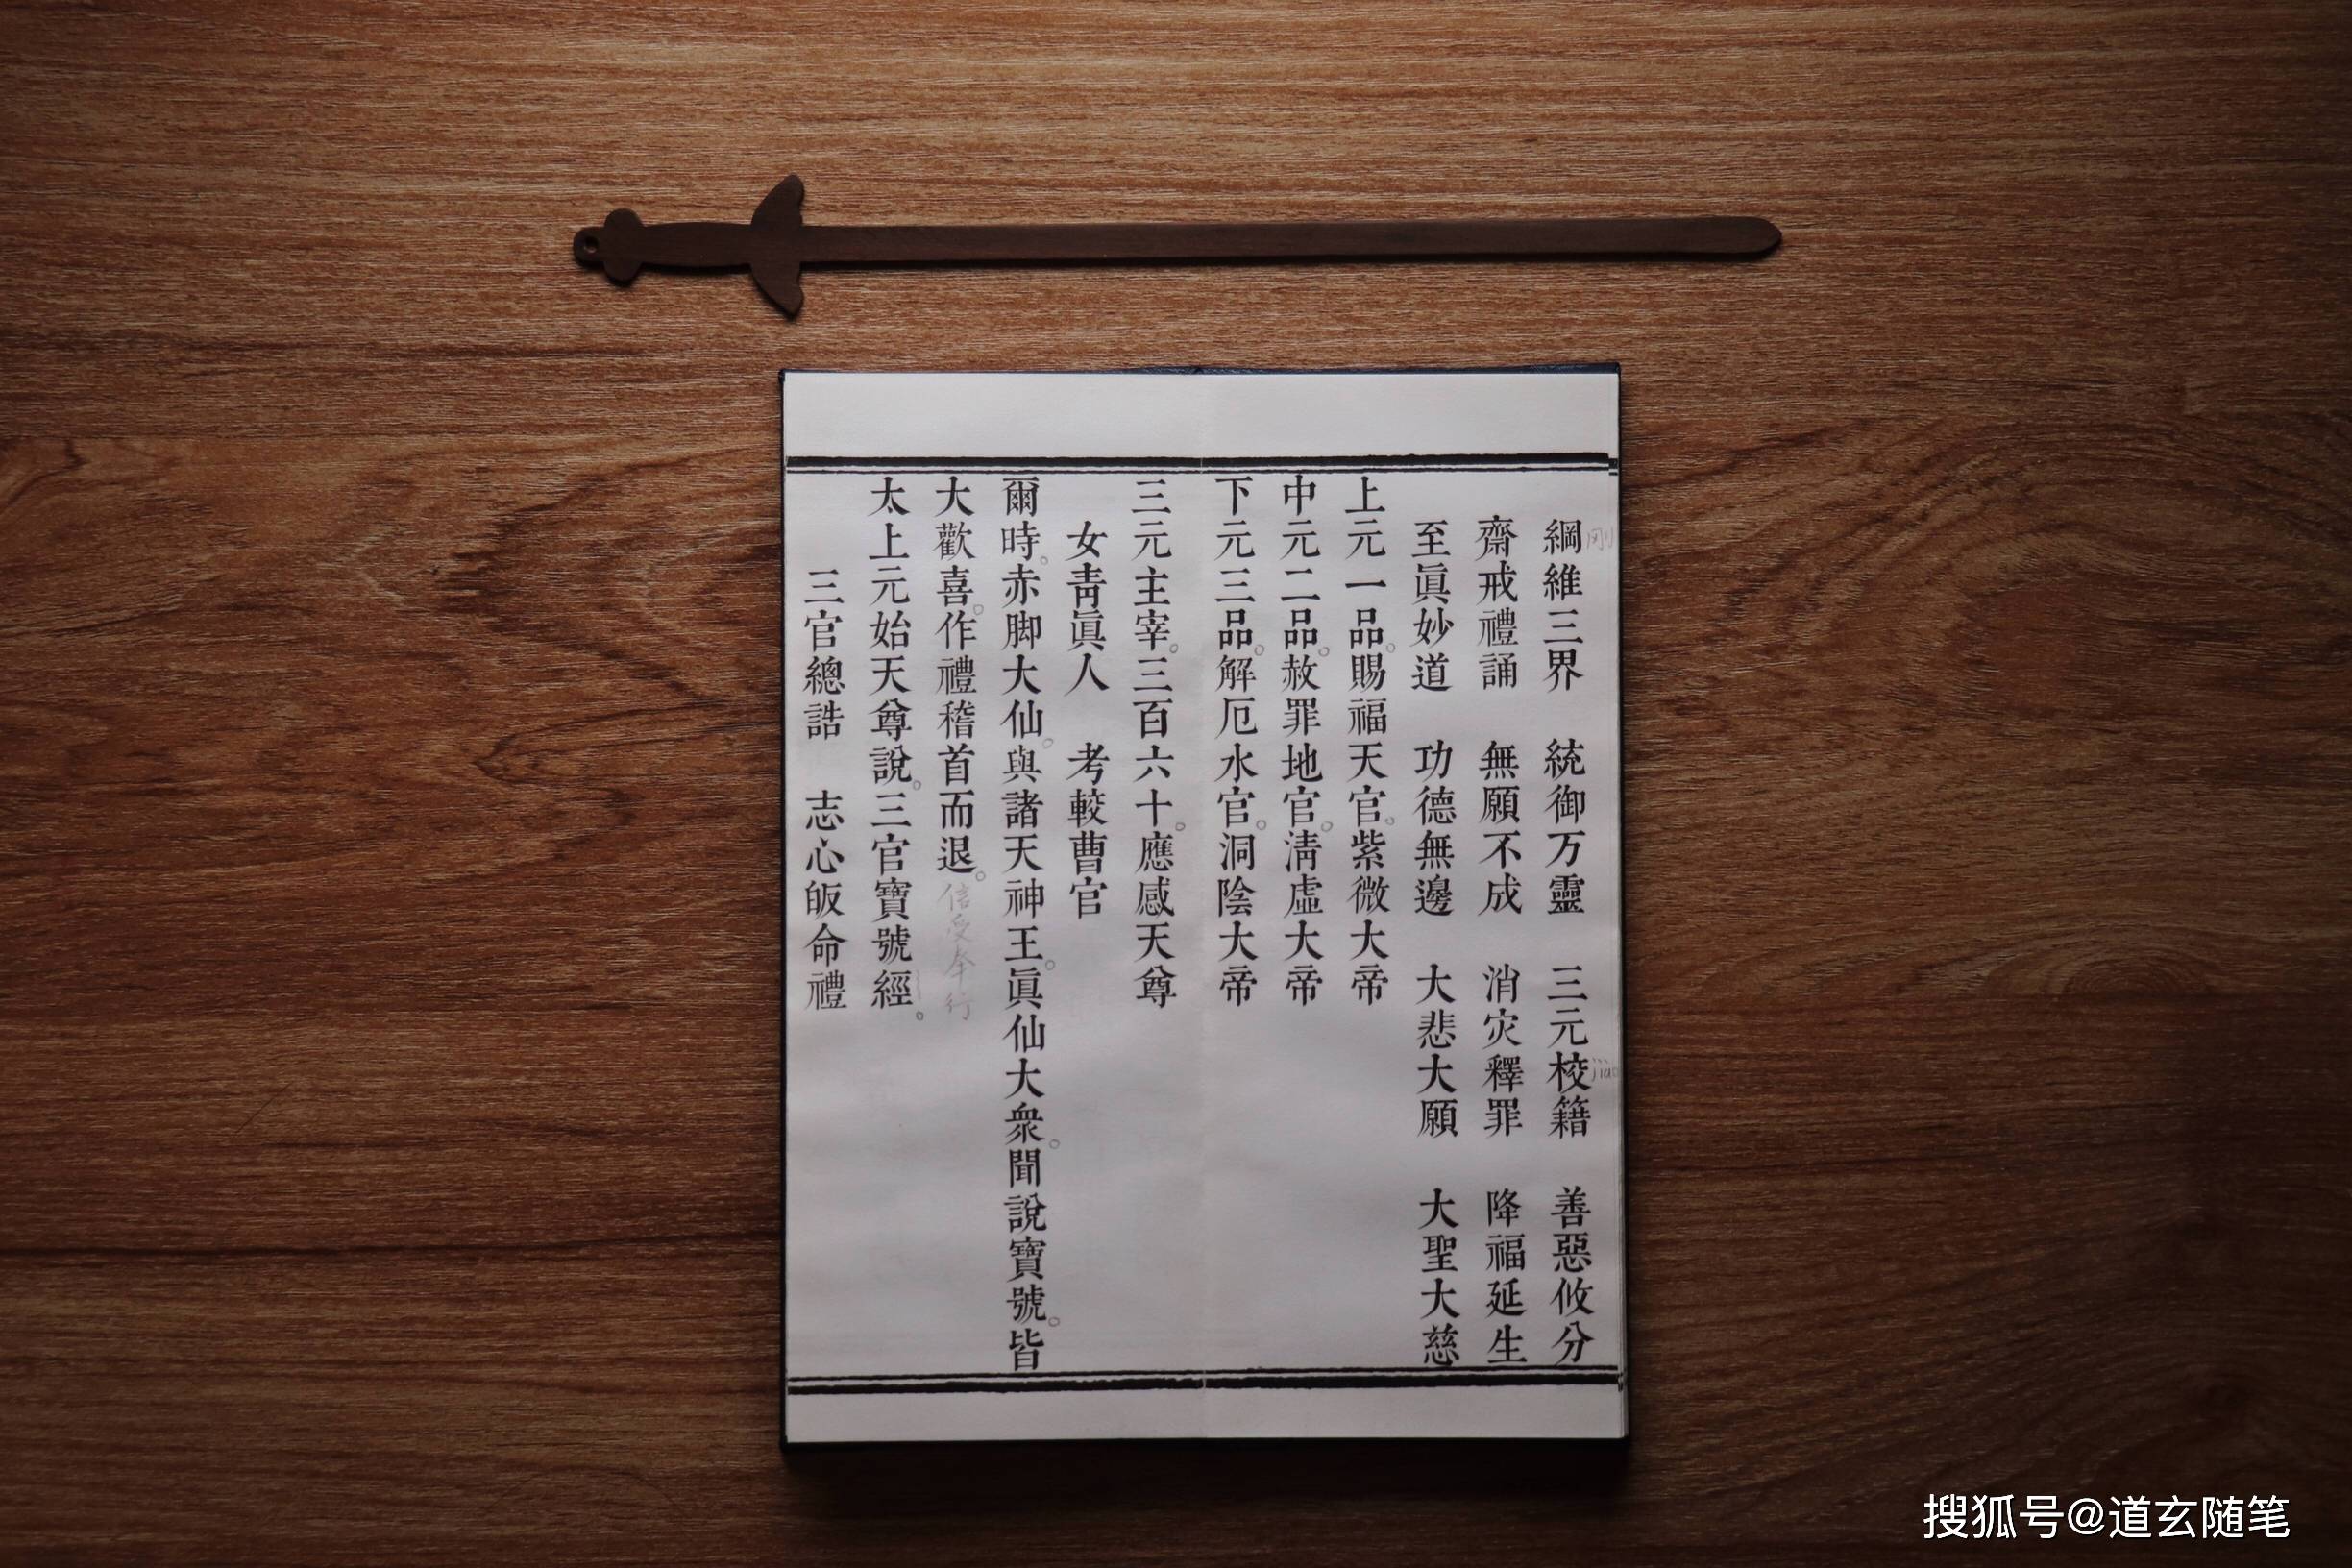 綱維三界　統御万靈　三元校籍　善惡攸分
剛
jiao
齋戒禮誦　無願不成　消灾釋罪　降福延生
至眞妙道　功德無邊　大悲大願　大聖大慈
上元一品。賜福天官。紫微大帝
中元二品。赦罪地官。淸虛大帝
下元三品。解厄水官。洞陰大帝
三元主宰。三百六十。應感天尊
女靑眞人　考較曹官
爾時。赤脚大仙。與諸天神王。眞仙大衆。聞說寶號。皆
大歡喜。作禮稽首而退。信受奉行
太上元始天尊說。三官寶號經。
三官總誥　志心皈命禮
搜狐号@道玄随笔